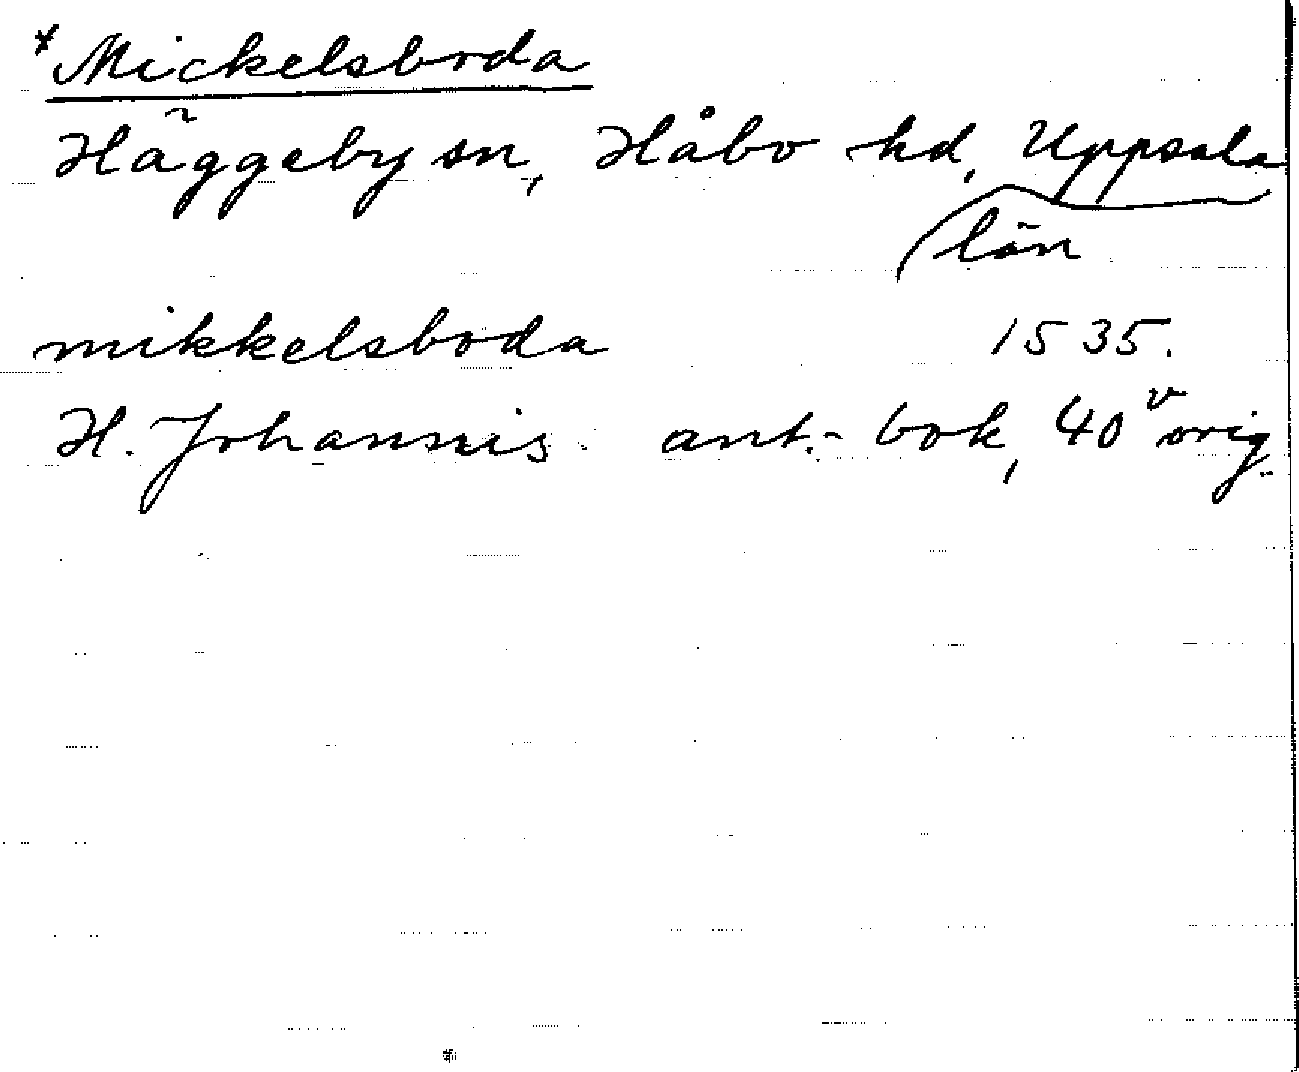 *Mickelsboda
Häggeby sn, Håbo hd, Uppsala
län
mikkelsboda 1535.
H. Johannis ant.- bok, 40v orig.